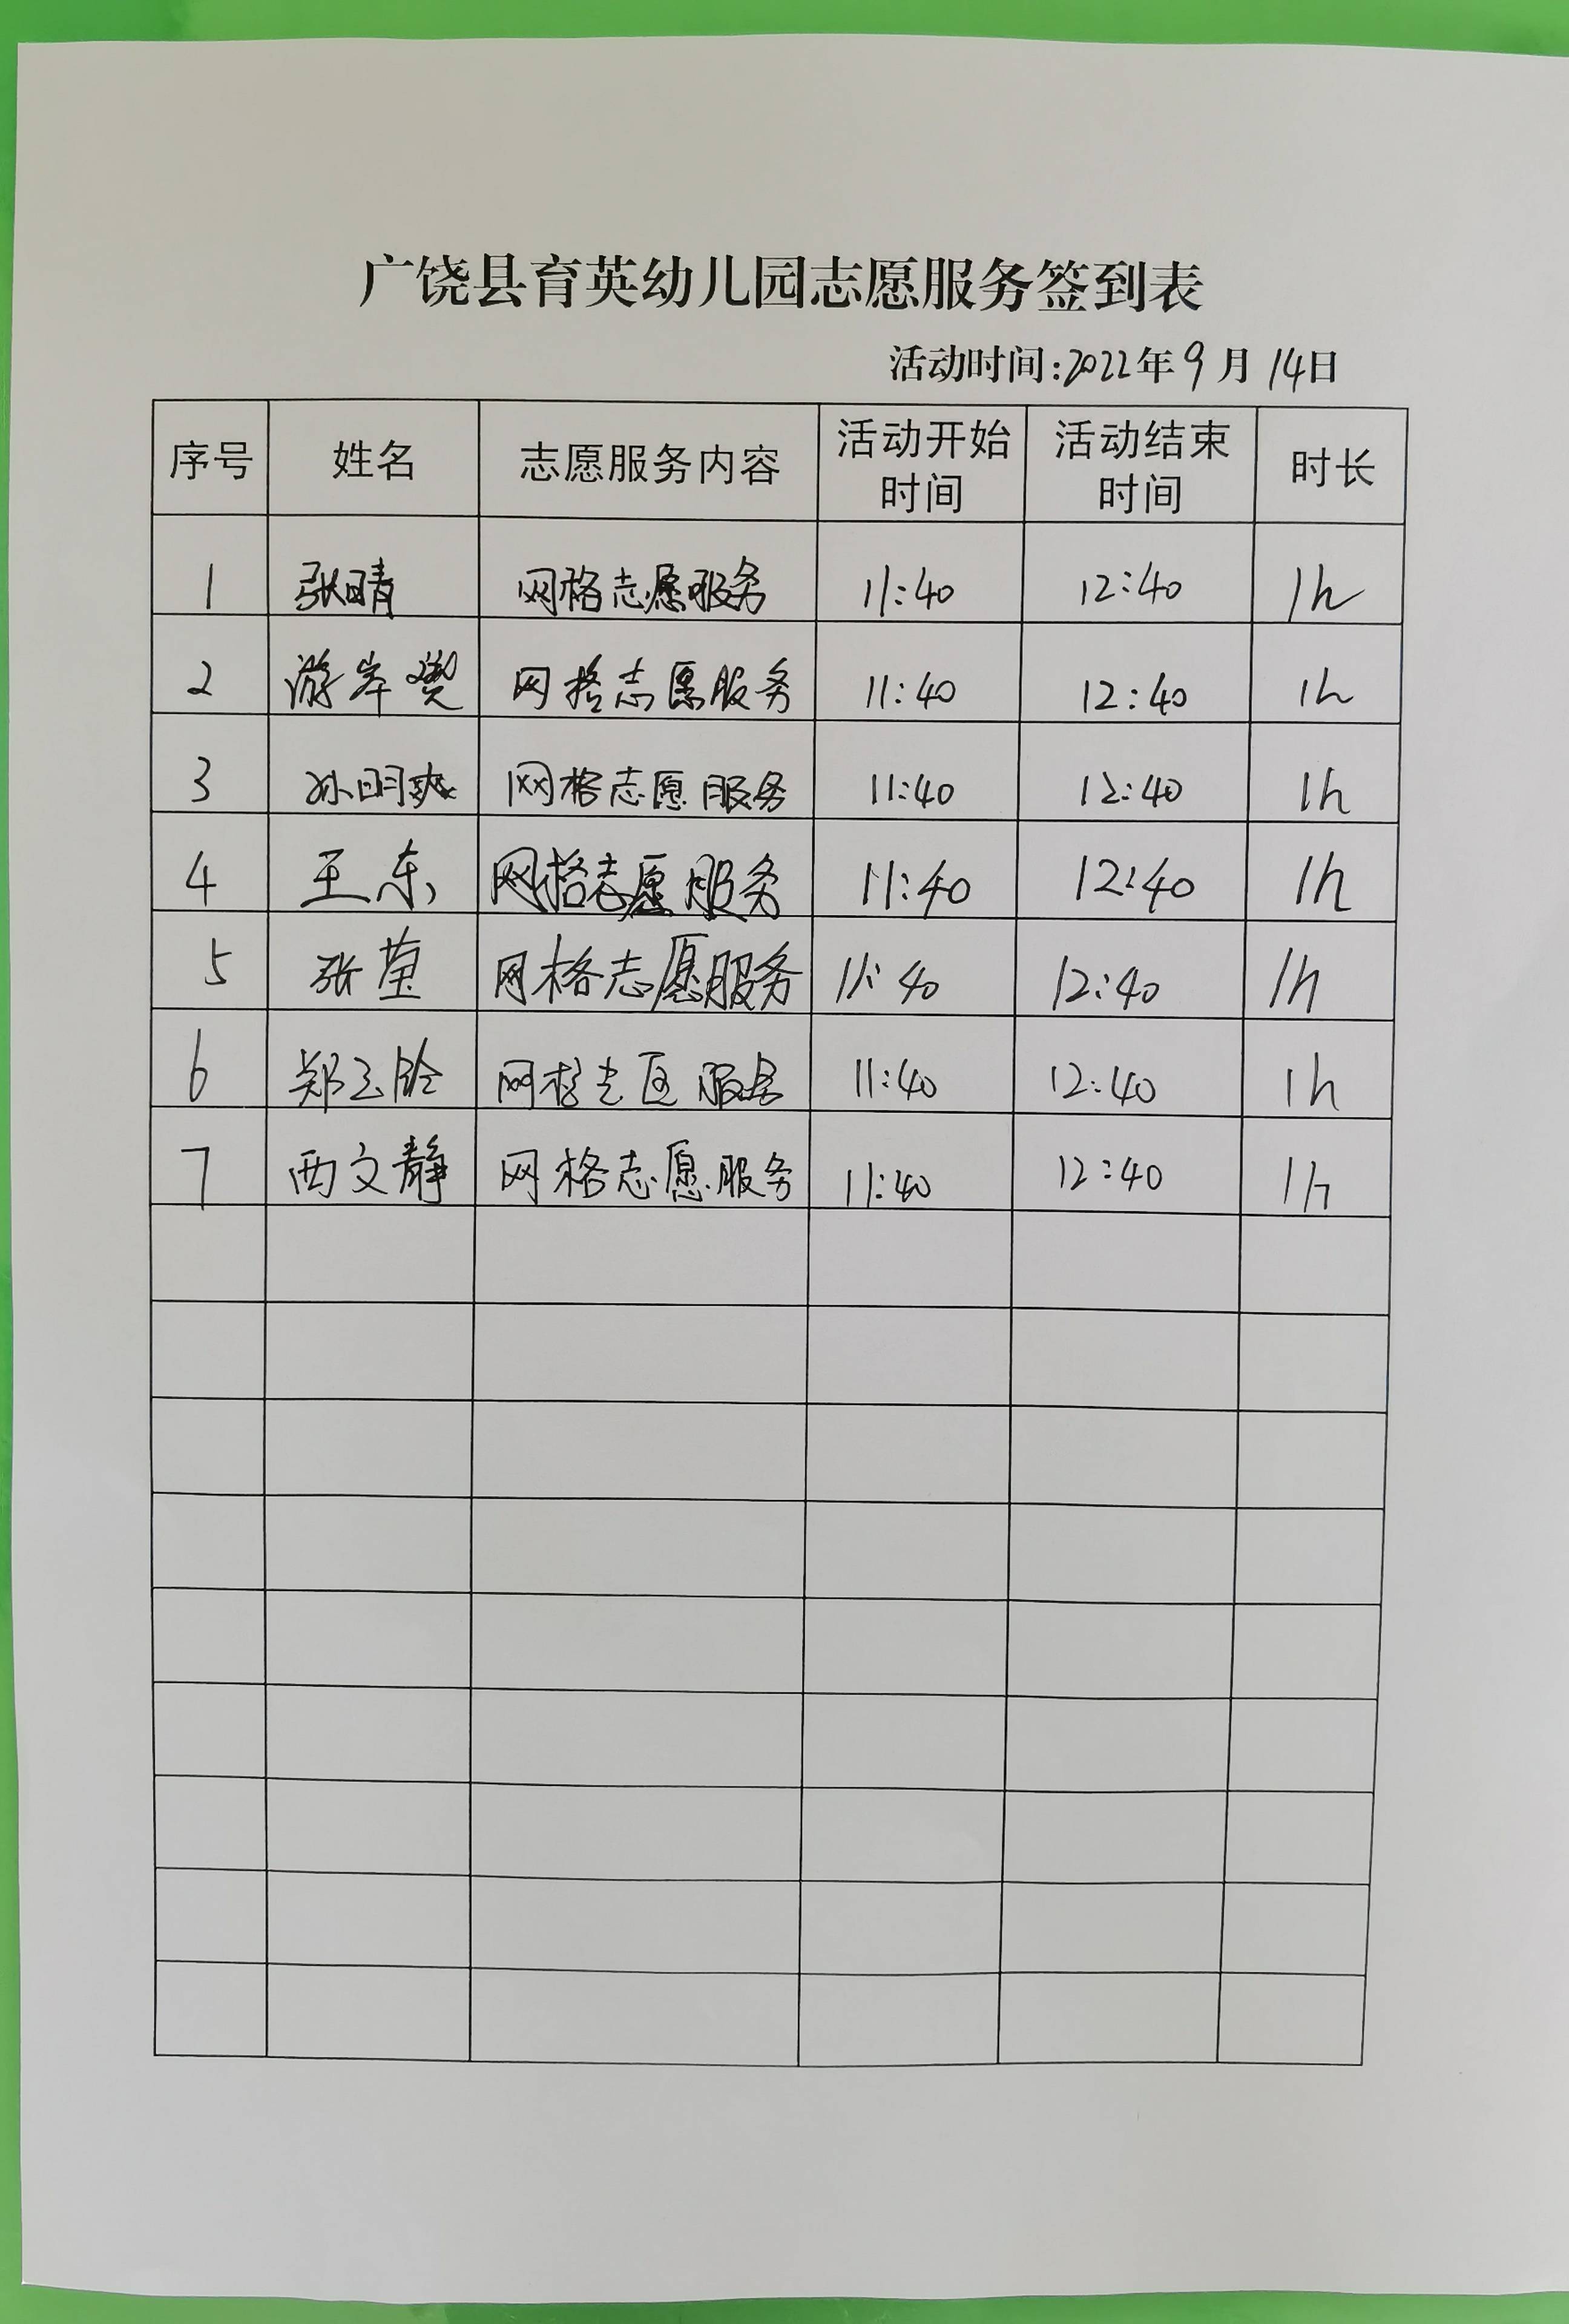 广饶县育英幼儿园志愿服务签到表
活动时间:2022年9月14日
序号 姓名 志愿服务内容 活动开始时间 活动结束时间 时长
1 张晴 网格志愿服务 11:40 12:40 1h
2 游 网格志愿服务 11:40 12:40 1h
3 孙明爽 网格志愿服务 11:40 12:40 1h
4 王东 网格志愿服务 11:40 12:40 1h
5 张莹 网格志愿服务 11:40 12:40 1h
6 郑玉玲 网格志愿服务 11:40 12:40 1h
7 西文静 网格志愿服务 11:40 12:40 1h